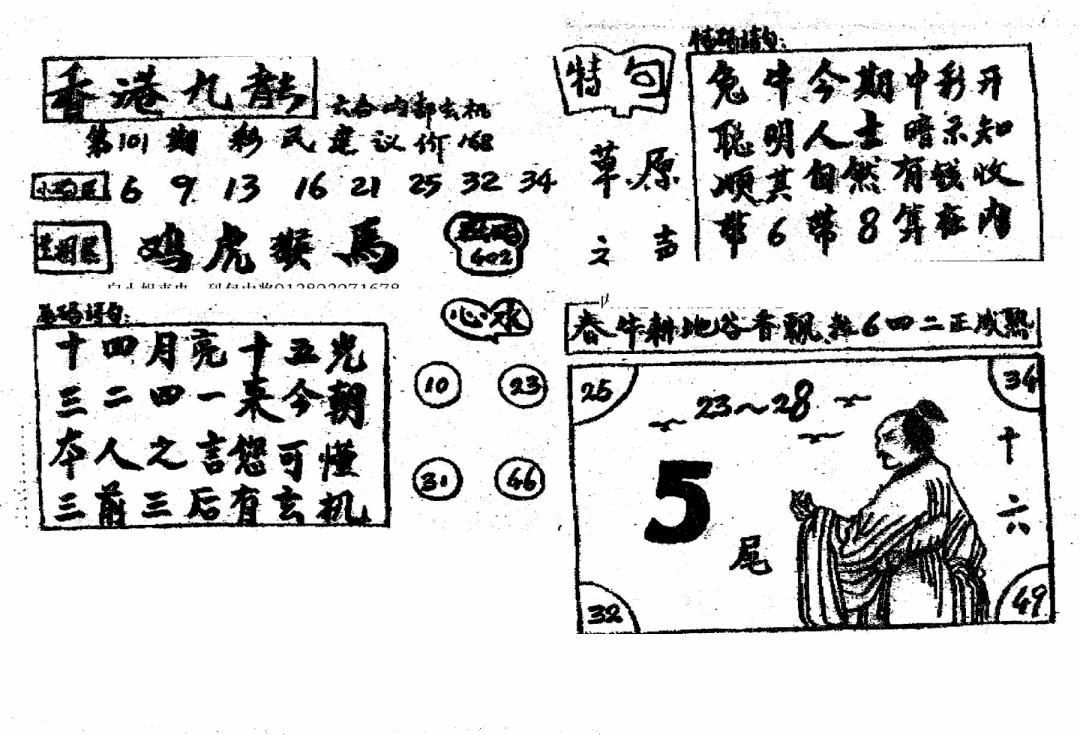 香港九龙
六合内部玄机
第101期 彩民建议价168
6 9 13 16 21 25 32 34
生肖区 鸡虎猴馬
602
十四月亮十五光
三二四一来今朝
本人之言您可懂
三前三后有玄机
心水
10 23
31 46
特句
草原
之声
特码诗句:
兔牛今期中彩开
聪明人士暗示知
顺其自然有钱收
带6带8算在内
春牛耕地谷香飘 6四二正成熟
25 34
23~28
5
尾
十
六
32 49